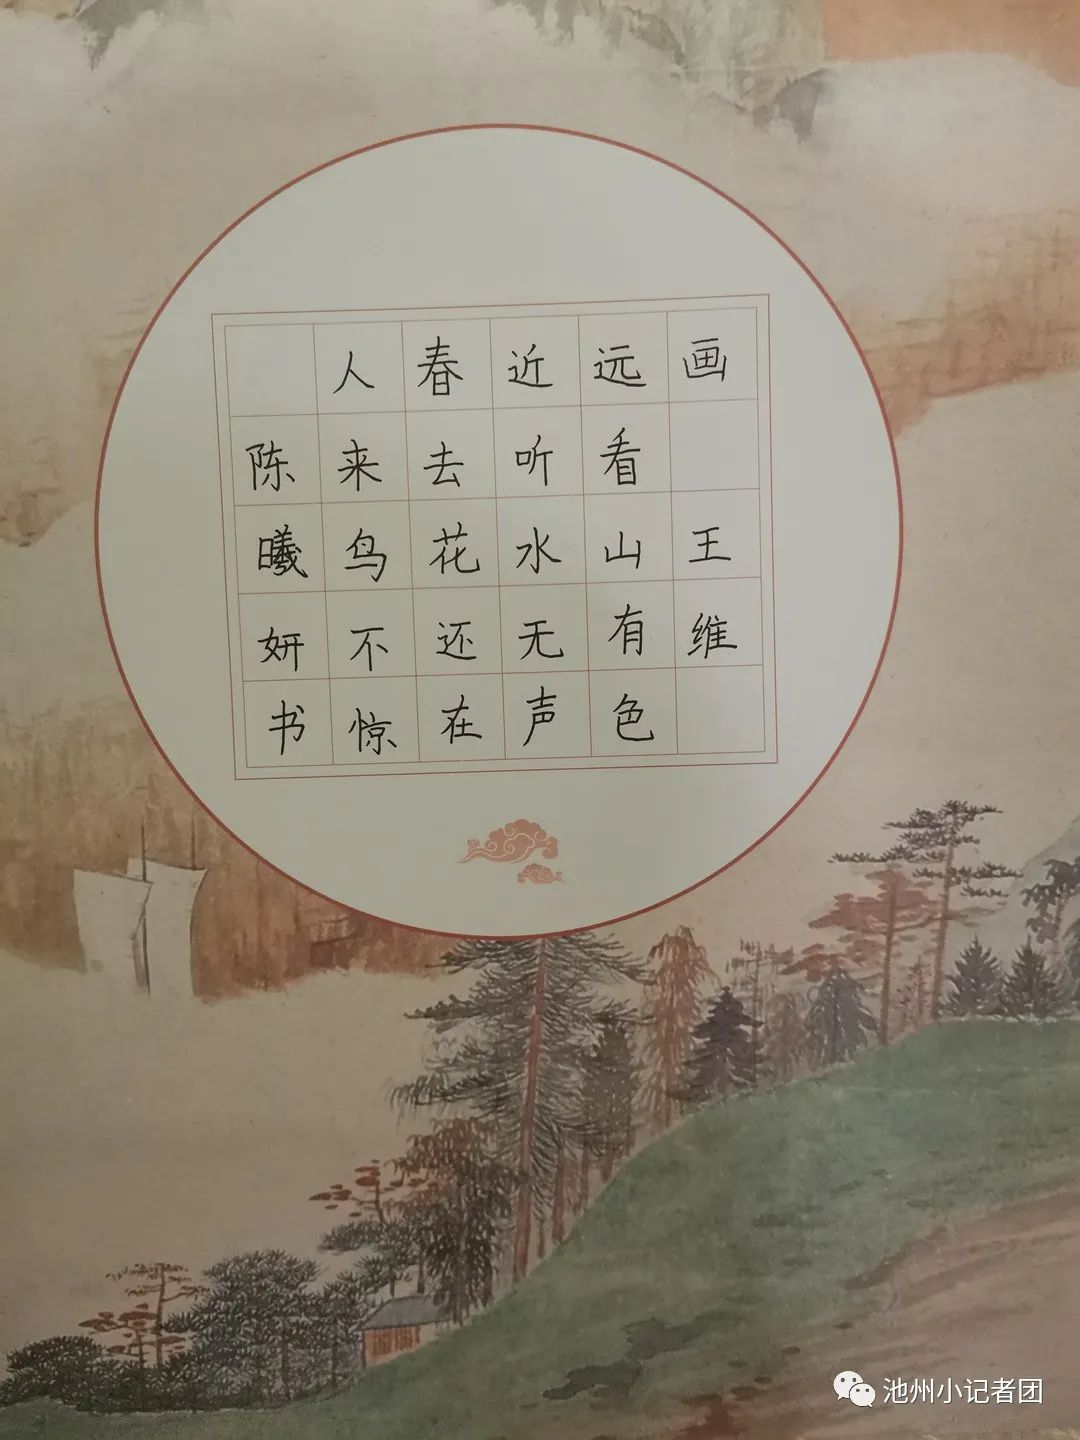 画 王维
远看山有色
近听水无声
春去花还在
人来鸟不惊
陈曦妍书
池州小记者团